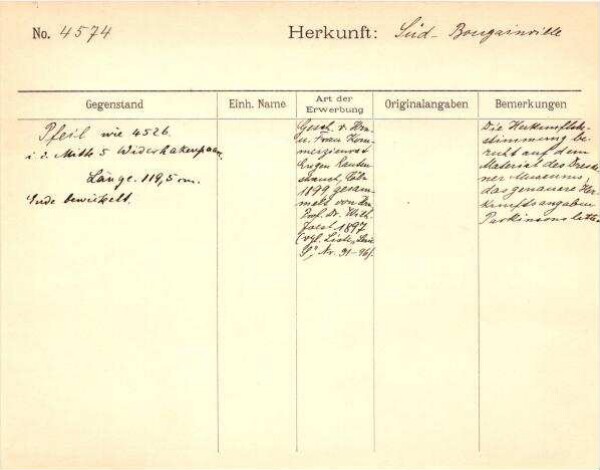 No. 4574
Herkunft: Süd-Bougainville
Gegenstand
Einh. Name
Art der Erwerbung
Originalangaben
Bemerkungen
Pfeil wie 4526
i. d. Mitte 5 Widerhakenpaare
Länge 119,5 cm.
Ende bewickelt.
Gesch. v. Hrn.
u. Frau Kom-
merzienrat
Eugen Rauten-
strauch, Cöln
1899 gesam-
melt von Hrn
Prof. Dr. Wilh.
Joest 1897
(vgl. Liste, Serie
Nr. 91-96).
Die Herkunftsbe-
stimmung be-
ruht auf dem
Material des Dresde-
ner Museums,
das genauere Her-
kunftsangaben
Parkinsons